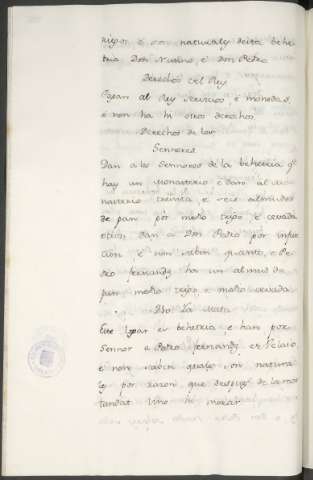 son naturaly desta behe
tria Don Nunno, e Don Pedro
Derechos del Rey
Pagan al Rey servicios, e monedas,
e non ha hi otros derechos
Derechos de los
Sennores
Dan a los Sennores de la behetria q.e
hay un Monasterio e daro al mo
nasterio treinta, e seis almudes
de pan por metio trigo e cevada
otrosi dan a Don Pedro por infur
cion e non saben quanto, e Pe
dro fernandz ha un almud de
pan metio trigo, e metio cevada.
Este logar es behetria, e han por
Sennor a Pedro fernandz de Velasco,
e non saben quales son natura
les por razon, que despues de la mor
tandat vino hi morar